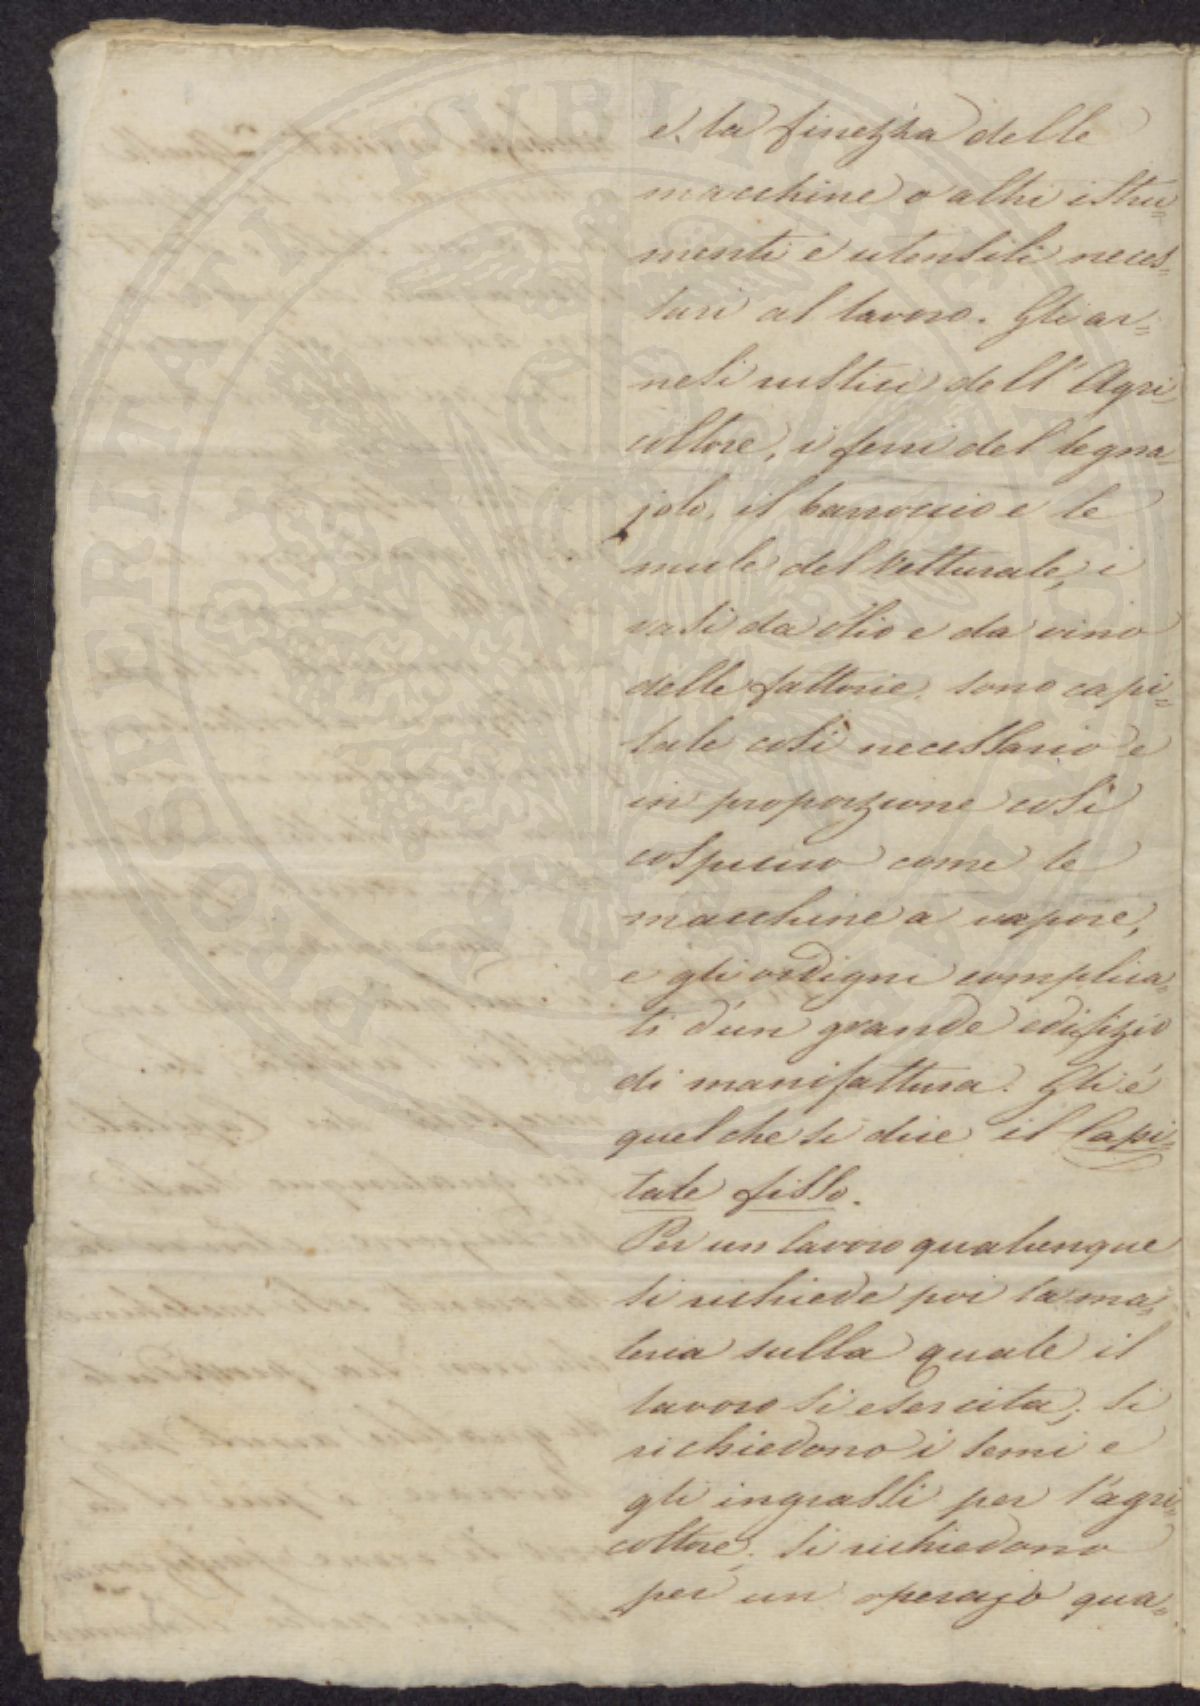 e la finezza delle
macchine o altri istru=
menti e utensili neces=
sari al lavoro. Gli ar=
nesi rustici dell'Agri=
coltore, i ferri del legna=
jolo, il barroccio e le
mule del Vetturale, i
vasi da olio e da vino
delle fattorie, sono capi=
tale così necessario e
in proporzione così
cospicuo come le
macchine a vapore,
e gli ordigni complica=
ti d'un grande edifizio
di manifattura. Gli è
quel che si dice il Capi=
tale fisso.
Per un lavoro qualunque
si richiede poi la ma=
teria sulla quale il
lavoro si esercita; si
richiedono i semi e
gli ingrassi per l'agri=
coltore; si richiedono
per un operajo qua=
PROSPERITATI PUBLICAE AUGENDAE